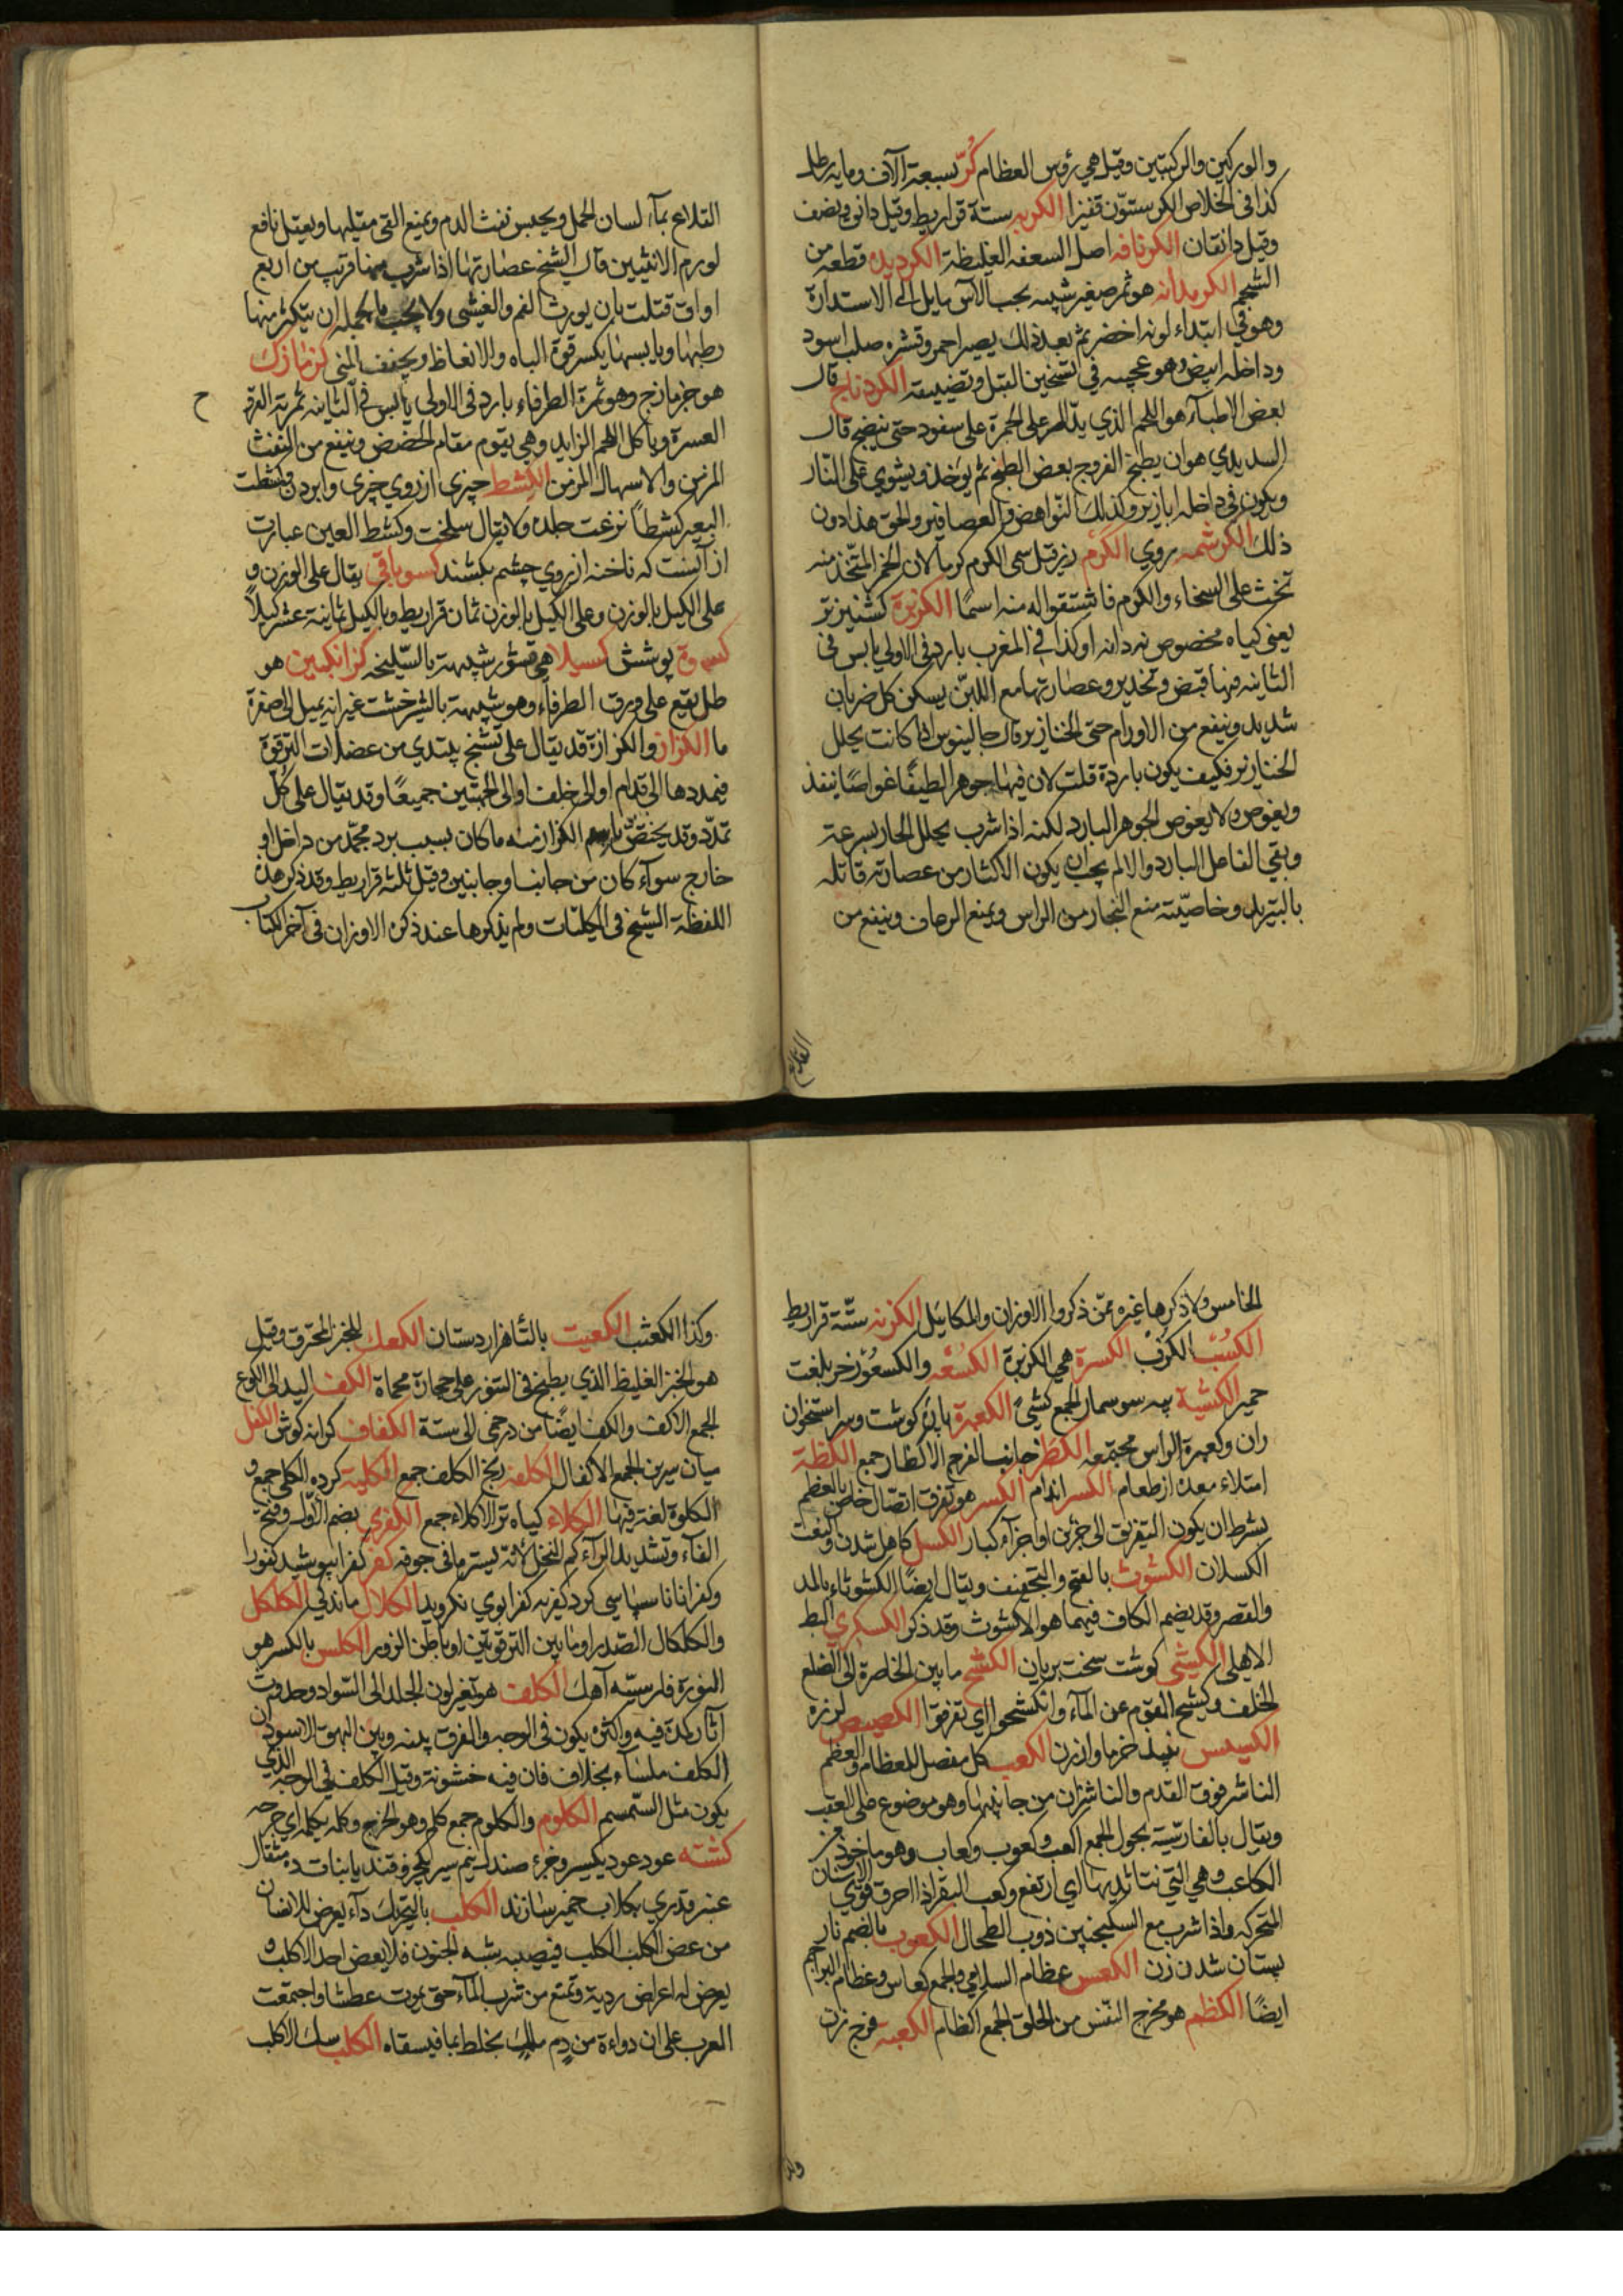 والوركين والركبتين وقيل هي رؤس العظام كُرّ سبعة آلاف ومايه رطل
كذا في الخلاص الكر ستون قفيزا الكربه ستة قراريط وقيل دانق ونصف
وقيل دانقان الكرنافه اصل السعفه الغليظة الكرديده قطعه من
الشحم الكرمدانه هو ثمر صغير شبيه بحب الآس مايل الى الاستدارة
وهو في ابتداء لونه اخضر ثم بعد ذلك يصير احمر وقشره صلب اسود
وداخله ابيض وهو عجيب في تسخين القبل وتضييقه الكردناج قال
بعض الاطباء هو اللحم الذي يدار على الجمرة على سفود حتى ينضج قال
السديدي هو ان يطبخ الفروج بعض الطبخ ثم يوخذ ويشوي على النار
ويكون في داخله ابازير وكذلك النواهض والعصافير والحق هذا دون
ذلك الكرشمه روي الكرم رز قيل سمى الكرم كرما لان الخمر المتخذ منه
تحث على السخاء والكرم فاشتقوا له منه اسمًا الكزبرة كشنيز تر
يعنى كياه مخصوص نه دانه او كذا في المغرب بارد في الاولى يابس في
الثانيه فيها قبض وتخدير وعصارتها مع اللبن يسكن كل ضربان
شديد وينفع من الاورام حتى الخنازير قال جالينوس اذا كانت يحلل
الخنازير فكيف يكون باردة قلت لان فيها جوهر الطيفًا غواصًا ينفذ
ويغوص ولا يغوص الجوهر البارد لكنه اذا شرب يحلل الحار بسرعة
وبقي الفاعل البارد والا لم يجب ان يكون الاكثار من عصارته قاتله
بالتبريد وخاصيته منع البخار من الراس ويمنع الرعاف وينفع من
القلاع
القلاع بماء لسان الحمل ويحبس نفث الدم ويمنع القى مقليها ويعقل نافع
لورم الانثيين قال الشيخ عصارتها اذا شرب منها قريب من اربع
اواق قتلت بان يورث الغم والغشى ولا يجب بالجمله ان يتكثر منها
رطبها ويابسها يكسر قوة الباه والانعاظ ويجفف المنى كزمازك
هو جزمازج وهو ثمرة الطرفاء بارد في الاولى يابس في الثانيه ثمرته القرة
ح
العسرة وياكل اللحم الزايد وهي يقوم مقام الحضض وينفع من النفث
المزمن والاسهال المزمن الكشط چيزى از روي چيزى وابردن وكشطت
البعير كشطًا نزعت جلده ولا يقال سلخت وكشط العين عبارت
از آنست كه ناخنه از روي چشم بكشند كسوباقي يقال على الوزن و
على الكيل بالوزن وعلى الكيل بالوزن ثمان قراريط وبالكيل ثمانية عشر كيلاً
كسوة پوشش كسيلا هي قشور شبيهة بالسليخه كزانكبين هو
طل يقع على ورق الطرفاء وهو شبيهة بالشيرخشت غير انه يميل الى صفرة
ما الكزاز والكزازة قد يقال على تشنج يبتدي من عضلات الترقوة
فيمددها الى قدام او الى خلف او الى الجهتين جميعًا وقد يقال على كل
تمدّد وقد يختص باسم الكزاز منه ما كان بسبب برد مجمّد من داخل او
خارج سوآء كان من جانب او جانبين وقيل ثلثه قراريط وقد ذكر هذه
اللفظة الشيخ في الكليّات ولم يذكرها عند ذكره الاوزان في آخر الكتاب
الخامس ولا ذكرها غيره ممّن ذكروا الاوزان والمكاييل الكزنه ستّة قراريط
الكُسُب الكُزب الكسرة هي الكزبرة الكُسْعه والكسعُوْ زخر بلغت
حمير الكشية پيه سوسمار الجمع كشىً الكعبرة پاره كوشت وسر استخوان
ران وكعبرة الراس مجتمعه الكظر جانب الفرج الاكظار جمع الكظة
امتلاء معده از طعام الكسر اندام الكسر هو تفرق اتصال خاص بالعظم
بشرط ان يكون التفريق الى جزئين او اجزآء كبار الكسل كاهل شدن والنعت
الكسلان الكشوث بالفتح والتخفيف ويقال ايضًا الكشوثاء بالمد
والقصر وقد يضم الكاف فيهما هو الاكشوث وقد ذكر الكسكري البط
الاهلى الكشى كوشت سخت بريان الكشح مابين الخاصرة الى الضلع
الخلف وكشح القوم عن المآء وانكشحوا اي تفرقوا الكصيص لرزه
الكسيس نبيذ خرما وارزن الكعب كل مفصل للعظام والعظم
الناشز فوق القدم والناشزان من جانبيها وهو موضوع على العقب
ويقال بالفارسية بجول الجمع اكعب وكعوب وكعاب وهو ماخوذ من
الكاعب وهي التي نتا ثديها اي ارتفع وكعب البقر اذا احرق قوّي الاسنان
المتحركه واذا شرب مع السكنجبين ذوب الطحال الكعوب بالضم نار
پستان شدن زن الكعس عظام السلامي والجمع كعاس وعظام البراجم
ايضًا الكظم هو مخرج النفس من الحلق الجمع اكظام الكعبه فرج زن
وكذا
وكذا الكعثب الكعيت بالتّأ هزاردستان الكعك للخبز المحترق وقيل
هو الخبز الغليظ الذي يطبخ في التنور على حجارة محماة الكف اليد الى الكوع
الجمع الاكف والكف ايضًا من درخمى الى ستة الكفاف كرانه كوش الكفل
ميان سرين الجمع الاكفال الكلفه ريخ الكلف جمع الكلية كرده الكلى جمع و
الكلوة لغة فيها الكلاء كياه تر الاكلاء جمع الكفري بضم الاوّل وفتح
الفآء وتشديد الرآء كم النخل لانّه يستر ما في جوفه كفر كفرا بپوشيد كفورا
وكفرانا ناسپاسي كرد كفر به كفرا بوي نكرويد الكلال ماندكي الكلكل
والكلكال الصّدر او ما بين الترقوتين او باطن الزور الكلس بالكسر هو
النورة فارسيّه آهك الكلف هو تغير لون الجلد الى السّواد وحدوث
آثار كمدة فيه واكثره يكون في الوجه والفرق بينه وبين البهق الاسود ان
الكلف ملسآء بخلاف فان فيه خشونة وقيل الكلف في الوجه الذي
يكون مثل السّمسم الكلوم والكلوم جمع كلم وهو الجرح وكلمه يكلمه اي جرحه
كشته عود عود يكسير وغره صندل نيم سير قند يا بنات ده مثقال
عنبر قدري بكلاب خمير سازند الكلب بالتحريك دآء يعرض للانسان
من عض الكلب الكلب فيصيبه شبه الجنون فلا يعض احد الاكلب و
يعرض له اعراض رديه وتمتع من شرب المآء حتى يموت عطشا واجتمعت
العرب على ان دواءه من دم ملك يخلط بما فيسقاه الكلب سك الاكلب